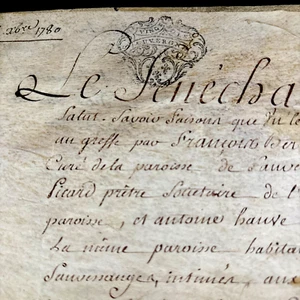 xbre 1780
Le Sénécha
Salut. Savoir faisons que Vu le
au greffe par François Ber
Curé de la paroisse de Sauve
Picard prêtre Societaire de l'
paroisse, et antoine hauve
La même paroisse habita
Sauvessanges, intimés, aux